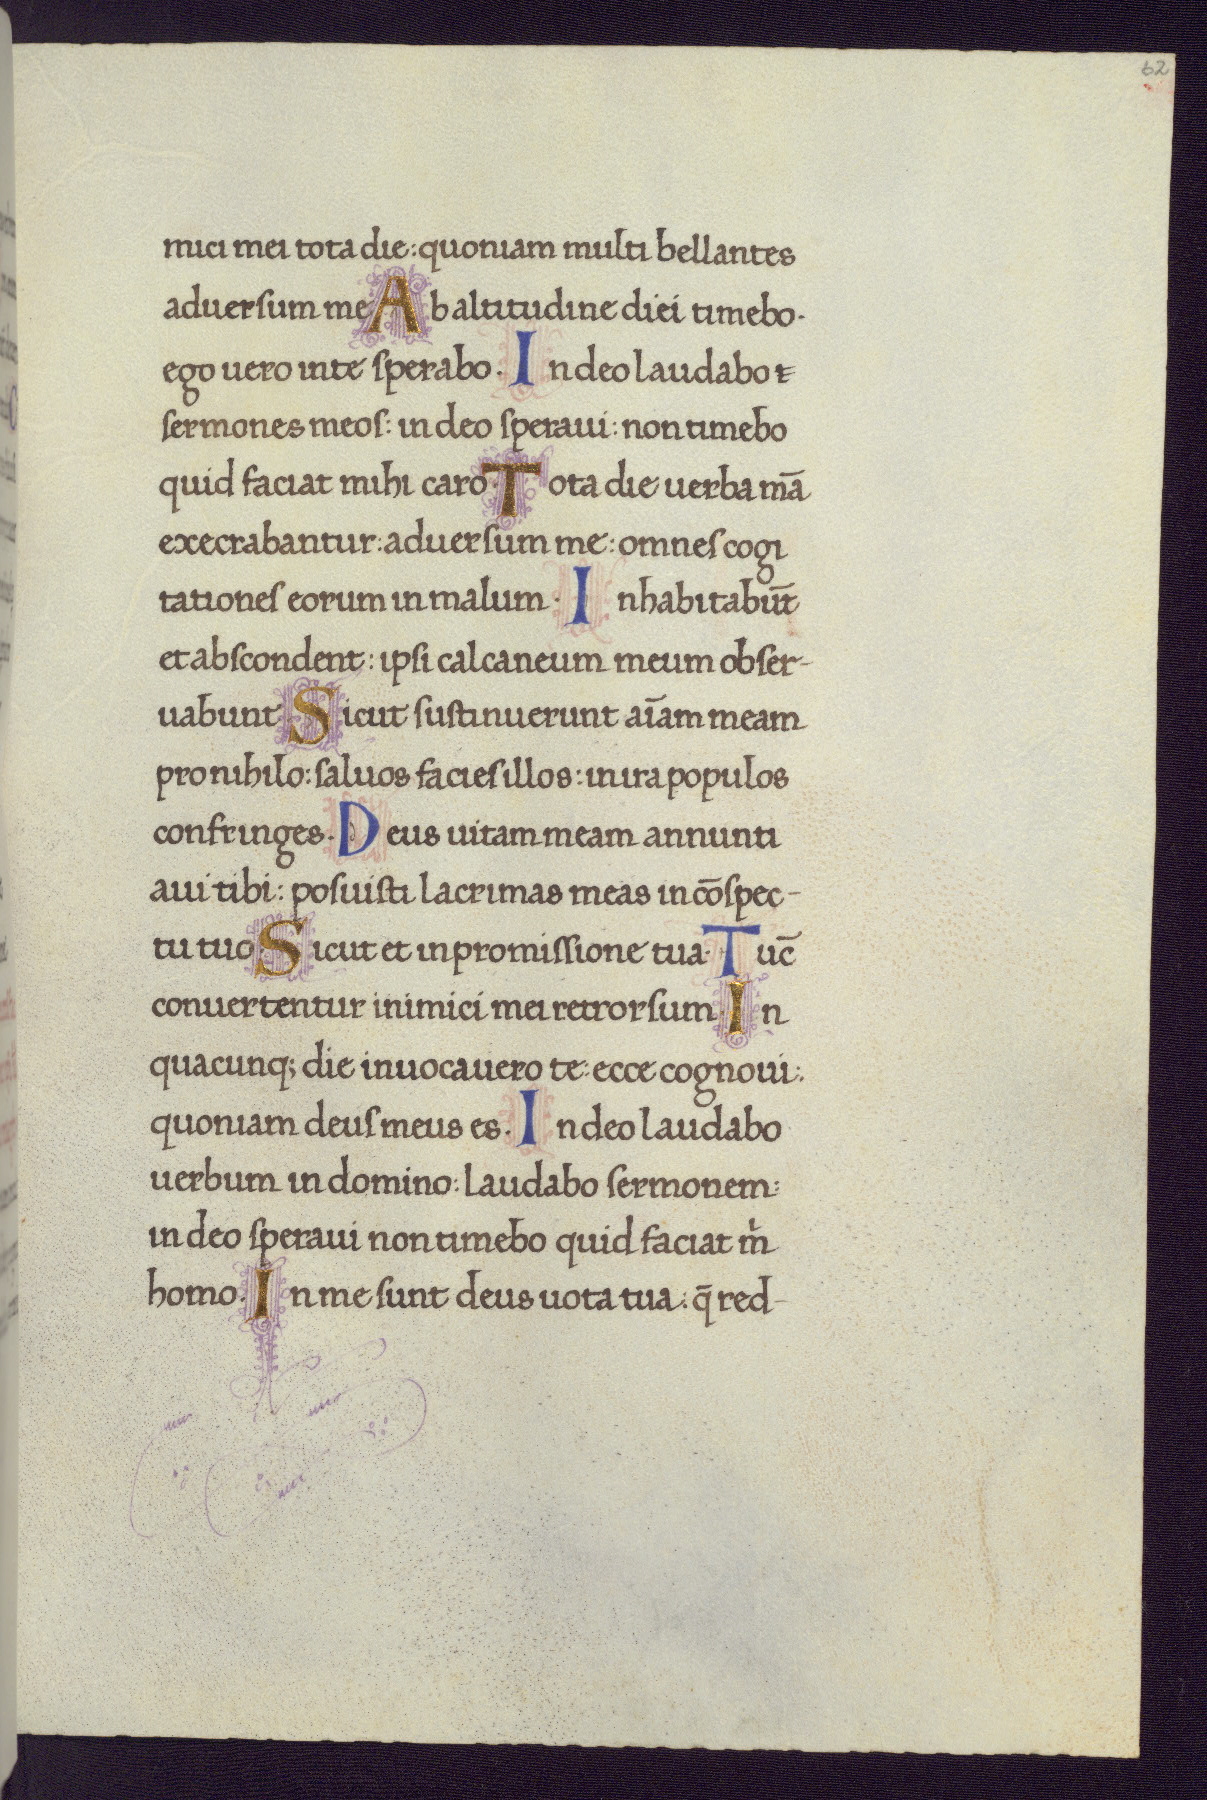 62
mici mei tota die: quoniam multi bellantes
aduersum me Ab altitudine diei timebo.
ego uero in te sperabo. In deo laudabo
sermones meos: in deo speraui: non timebo
quid faciat mihi caro. Tota die uerba mā
execrabantur: aduersum me: omnes cogi
tationes eorum in malum. Inhabitabūt
et abscondent: ipsi calcaneum meum obser-
uabunt Sicut sustinuerunt aīam meam
pro nihilo: saluos facies illos: in ira populos
confringes. Deus uitam meam annunti
aui tibi: posuisti lacrimas meas in cōspec-
tu tuo. Sicut et in promissione tua. Tuc̄
conuertentur inimici mei retrorsum. In
quacunq; die inuocauero te: ecce cognoui:
quoniam deus meus es. In deo laudabo
uerbum in domino: laudabo sermonem:
in deo speraui non timebo quid faciat m̄
homo. In me sunt deus uota tua: q̄ red-